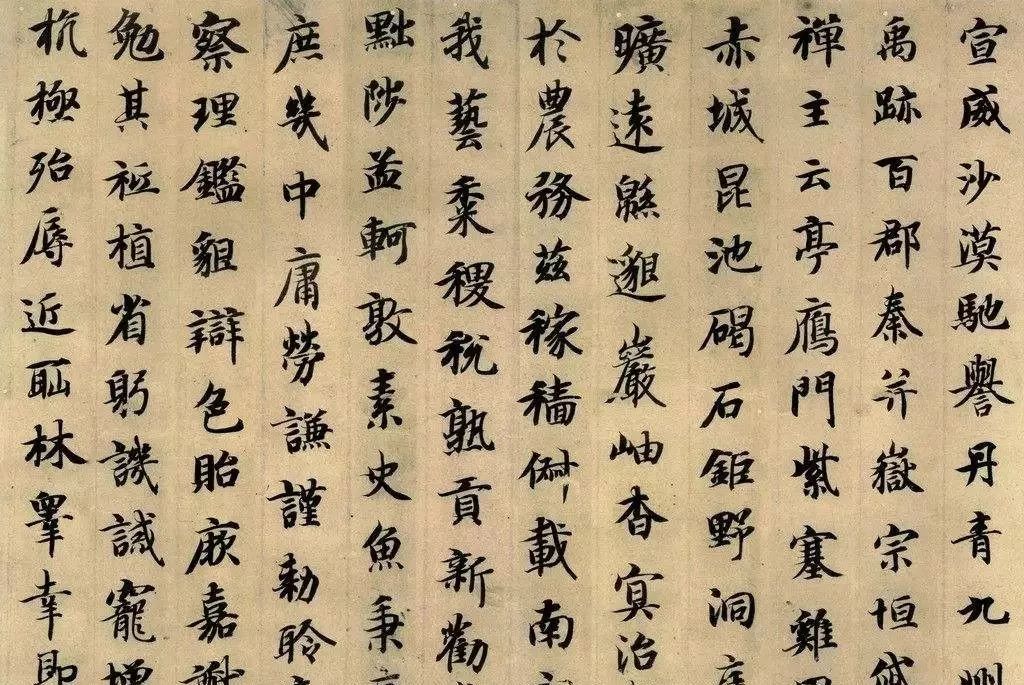 宣威沙漠馳譽丹青九
禹跡百郡秦并嶽宗恒岱
禪主云亭鴈門紫塞雞
赤城昆池碣石鉅野洞
曠遠緜邈巖岫杳冥治
於農務茲稼穡俶載南
我藝黍稷稅熟貢新勸
黜陟孟軻敦素史魚秉
庶幾中庸勞謙謹勑聆
察理鑑貌辯色貽厥嘉猷
勉其祗植省躬譏誡寵增
抗極殆辱近恥林睪幸即